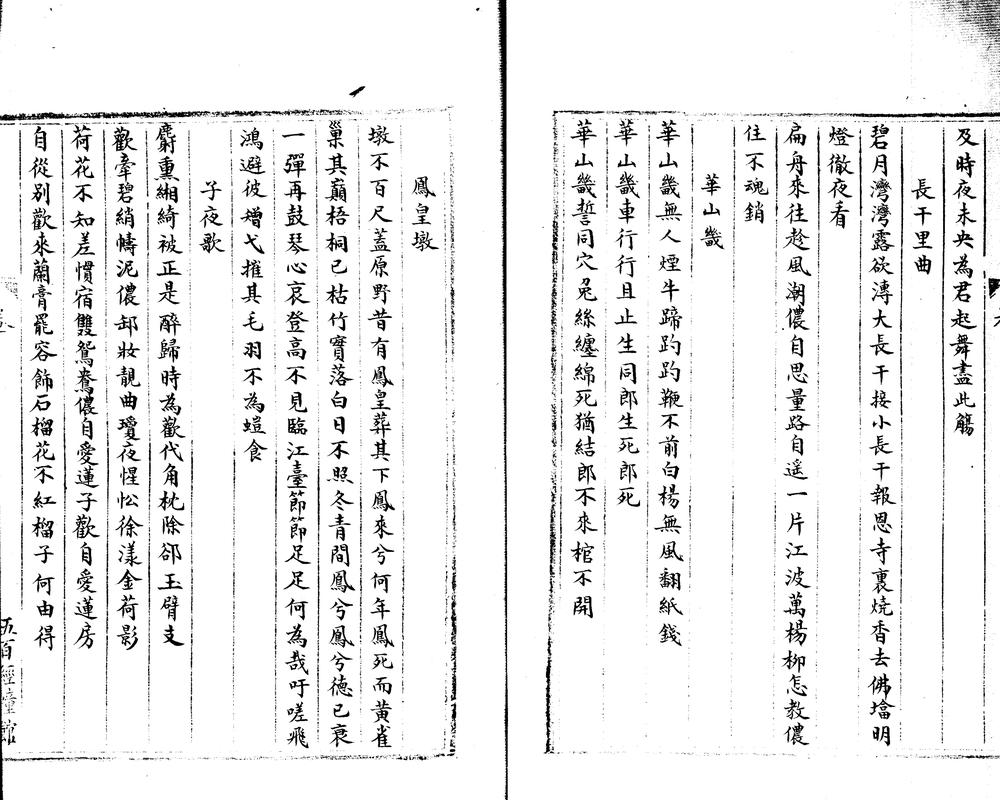 及時夜未央為君起舞盡此觴
長干里曲
碧月灣灣露欲漙大長干接小長干報恩寺裏燒香去佛墖明
燈徹夜看
扁舟來往趁風潮儂自思量路自遥一片江波萬楊柳怎教儂
住不魂銷
華山畿
華山畿無人煙牛蹄趵趵鞭不前白楊無風翻紙錢
華山畿車行行且止生同郎生死郎死
華山畿誓同穴兔絲纏綿死猶結郎不來棺不開
鳳皇墩
墩不百尺蓋原野昔有鳳皇葬其下鳳來兮何年鳳死而黃雀
巢其巔梧桐已枯竹實落白日不照冬青間鳳兮鳳兮德已衰
一彈再鼓琴心哀登高不見臨江臺節節足足何為哉吁嗟飛
鴻避彼矰弋摧其毛羽不為螘食
子夜歌
麝熏緗綺被正是醉歸時為歡代角枕除郤玉臂支
歡牽碧綃幬泥儂卸妝靚曲瓊夜惺忪徐漾金荷影
荷花不知差慣宿雙鴛鴦儂自愛蓮子歡自愛蓮房
自從別歡來蘭膏罷容飾石榴花不紅榴子何由得
五百經幢館